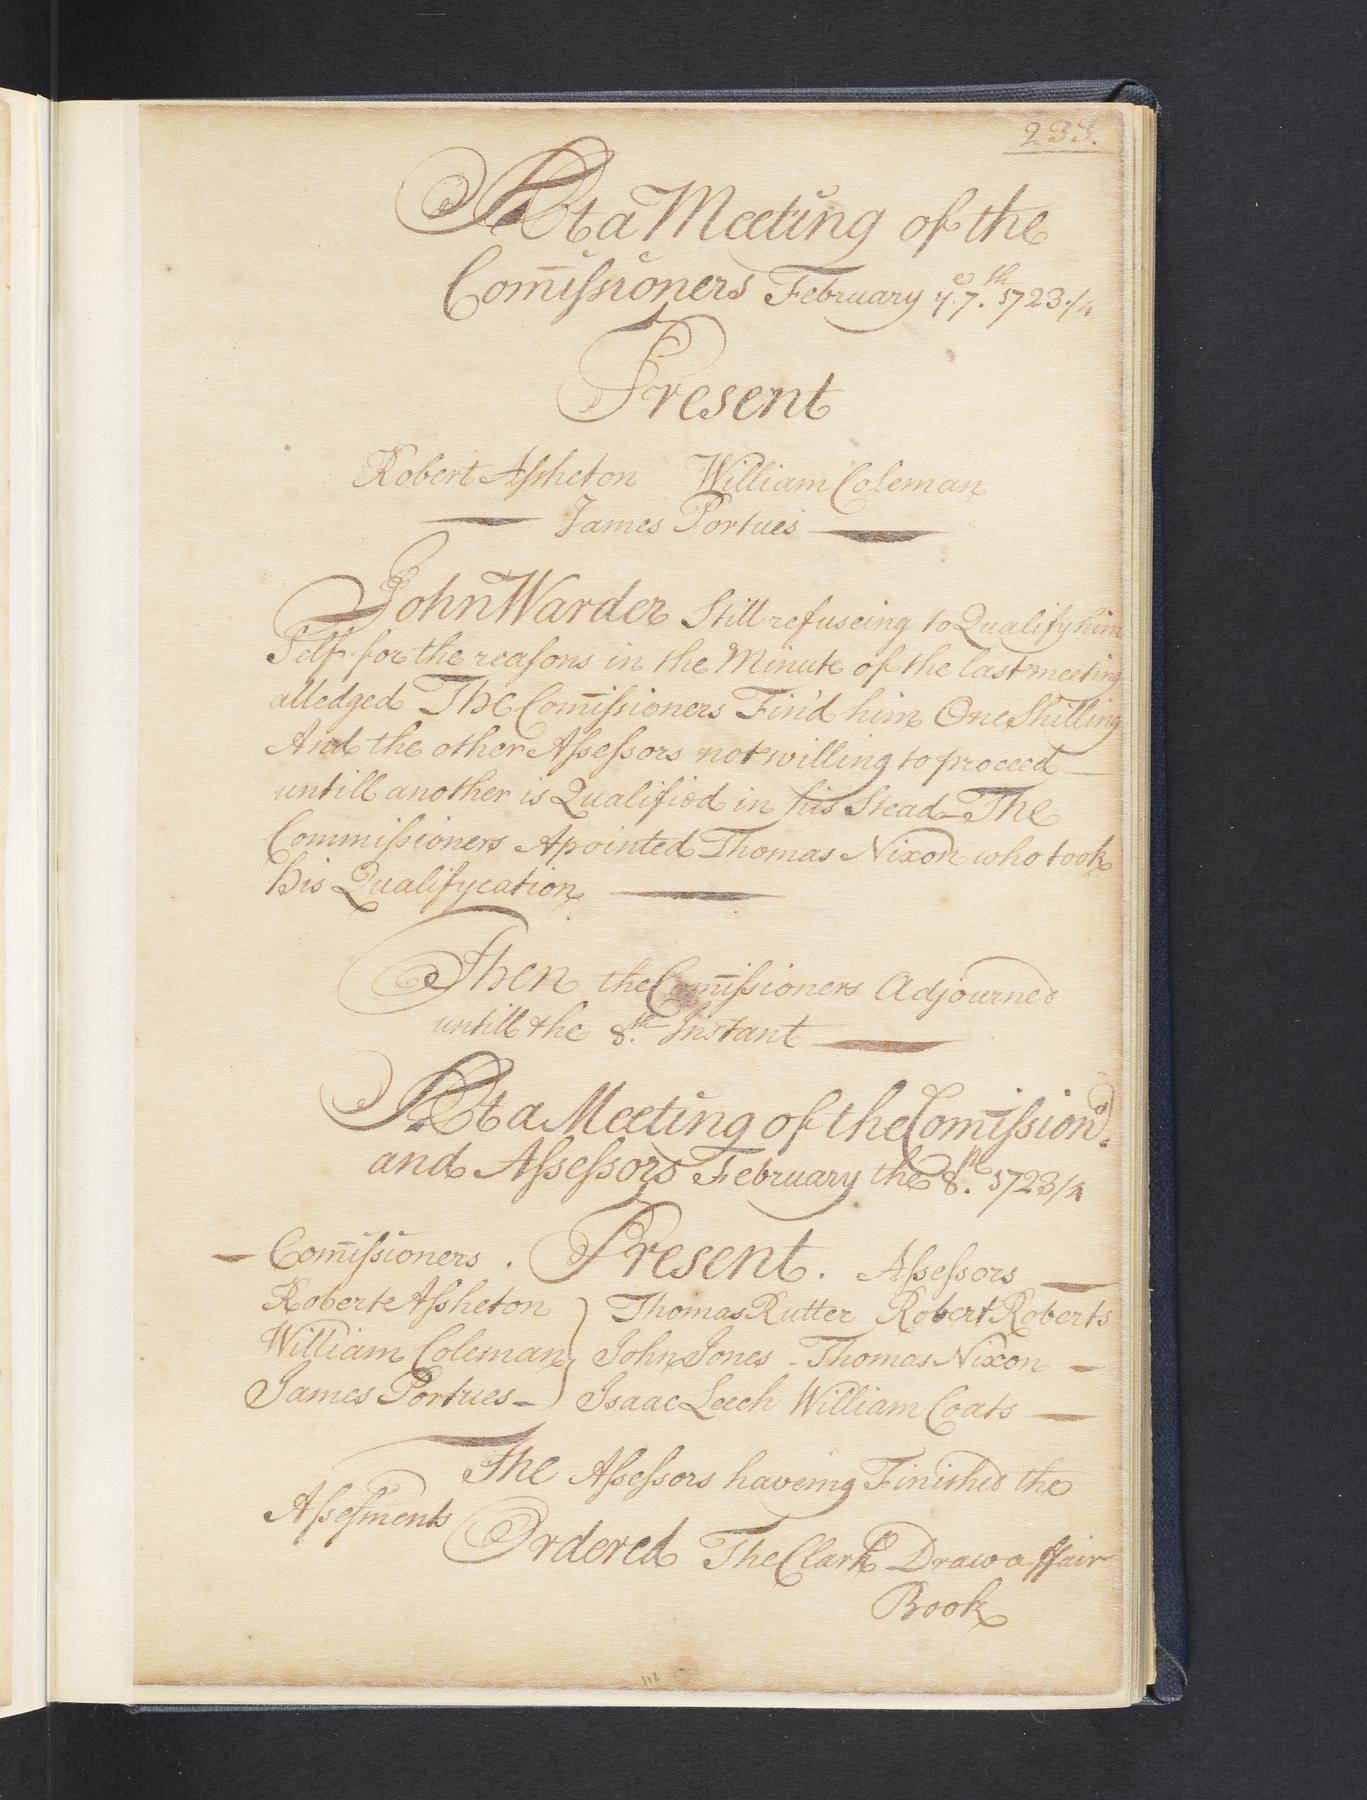 233.
At a Meeting of the
Com̄issioners February yᵉ 7.ᵗʰ 1723./4
Present
Robert Assheton William Coleman
James Portues
John Warder Still refuseing to Qualify him
Self for the reasons in the Minute of the last meeting
alledged The Com̄issioners Fin'd him One Shilling
And the other Assessors not willing to proceed
untill another is Qualified in his Stead - The
Commissioners Apointed Thomas Nixon who took
his Qualifycation
Then the Com̄issioners Adjourned
untill the 8.ᵗʰ Instant
At a Meeting of the Com̄issionʳˢ.
and Assessors February the 8.ᵗʰ 1723/4
Com̄issioners. Present. Assessors
Robert Assheton Thomas Rutter Robert Roberts
William Coleman John Jones - Thomas Nixon -
James Portues - Isaac Leech William Coats
The Assessors haveing Finished the
Assessments
Ordered The Clark Draw a ffair
Book
118